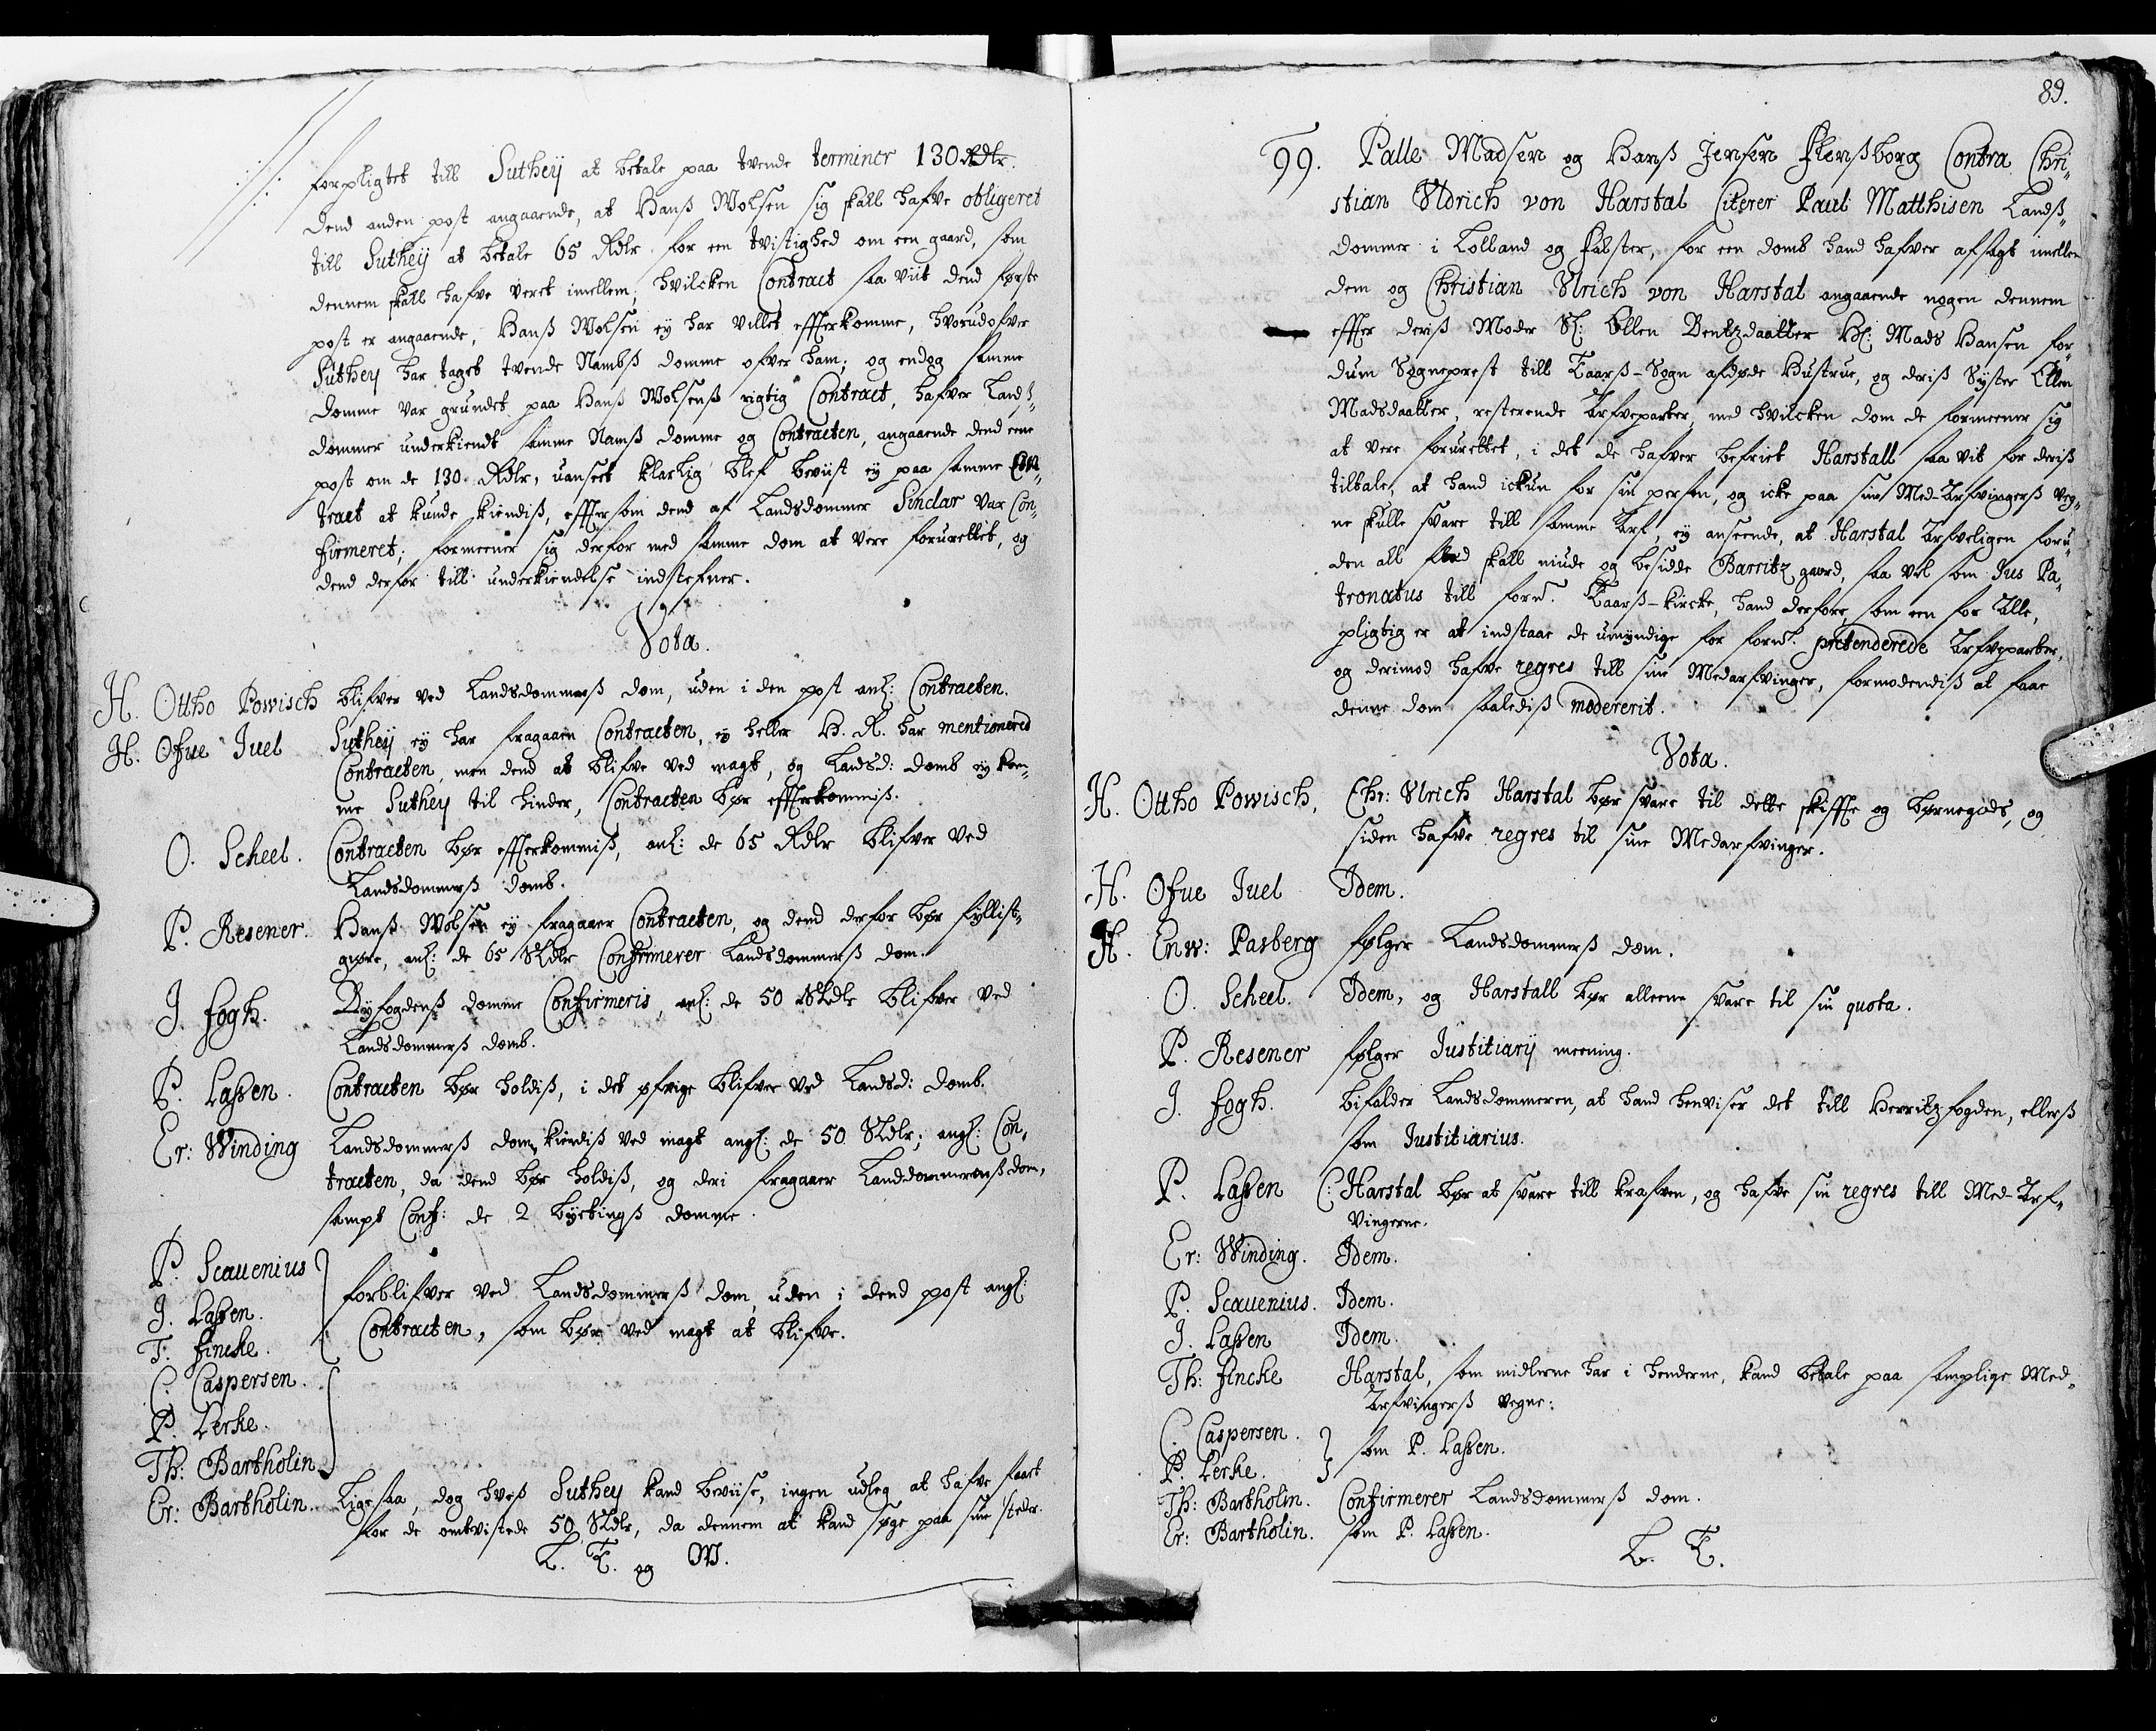 forpligtet till Suthey at betale paa tvende terminer 130 Rdlr.
dend anden post angaaende, at Hanß Wolsen sig skall hafve obligeret
till Suthey at betale 65 Rdlr for een tvistighed om een gaard, som
dennem skall hafve veret imellem, hvilcken Contract saa viit dend første
post er angaaende, Hanß Wolsen ey har villet efterkomme, hvorudofver
Suthey har taget tvende Nambß domme ofver ham; og endog samme
domme var grundet paa Hanß Wolsenß rigtig Contract, hafver Landß-
dommer underkiendt samme Namß domme og Contracten, angaaende dend eene
post om de 130 Rdlr, uanseet klarlig blef beviist ey paa samme Con-
tract at kunde kiendiß, eftersom dend af Landsdommer Sinclar var Con-
firmeret; formeener sig derfor med samme dom at vere forurettet, og
dend derfor till underkiendelse indstefner.
Vota.
H. Ottho Powisch blifver ved Landsdommerß dom, uden i den post anl: Contracten.
H. Ofue Iuel Suthey ey har fragaaen Contracten, ey heller H. R. har mentionered
Contracten, men dend at blifve ved magt, og Landsd: domb ey kom-
me Suthey til hinder, Contracten bør efterkommiß.
O. Scheel. Contracten bør efterkommiß, anl: de 65 Rdlr blifver ved
Landsdommerß domb.
P. Resener. Hanß Wolsen ey fragaaer Contracten, og dend derfor bør fyllist-
giøre, anl: de 65 Sldlr Confirmerer Landsdommerß dom.
J. fogh. Byfogdenß domme Confirmeris, anl: de 50 Sldlr blifver ved
Landsdommerß domb.
P. Lassen. Contracten bør holdiß, i det øfrige blifver ved Landsd: domb.
Er: Winding Landsdommerß dom kiendiß ved magt angl: de 50 Sldlr; angl: Con-
tracten, da dend bør holdiß, og deri fragaaer Landdommerenß dom,
sampt Conf: de 2 byetingß domme.
P. Scauenius
J. Lassen. forblifver ved Landsdommerß dom, uden i dend post angl:
T. fincke. Contracten, som bør ved magt at blifve.
C. Caspersen.
P. Lerke.
Th: Bartholin
Er: Bartholin. Ligesaa, dog hveß Suthey kand beviise, ingen udleg at hafve faaet
for de omtvistede 50 Sldlr, da dennem at kand søge paa sine steder.
L. K. og W.
89.
99. Palle Madsen og Hanß Jensen flenßborg Contra Chri-
stian Vldrich von Harstal Citerer Paul Matthisen Landß-
dommer i Lolland og falster, for een domb hand hafver afsagt imellem
dem og Christian Vlrich von Harstal angaaende nogen dennem
effter deriß Moder Sl: Ellen Bentzdaatter Hl: Mads Hansen for-
dum Sogneprest till Kaarß-Sogn afdøde Hustrue, og deriß Syster Ellen
Madsdaatter, resterende Arfveparter, med hvilcken dom de formeener sig
at vere forurettet, i det de hafver befriet Harstall saa vit for deriß
tiltale, at hand ickun for sin person, og icke paa sine Med-Arfvingerß veg-
ne skulle svare till samme Arf, ey anseende, at Harstal Arfveligen foru-
den all skall niude og besidde Barritz gaard, saa vel som Jus Pa-
tronatus till forn: Kaarß-kircke, hand derfore, som een for Alle,
pligtig er at indstaae de umyndige for forn: prætenderede Arfveparter,
og derimod hafve regres till sine Medarfvinger, formodendiß at faae
denne dom saalediß modererit.
Vota.
H. Ottho Powisch. Chr: Vlrich Harstal bør svare til dette skiffte og børnegods, og
siden hafve regres til sine Medarfvinger.
H. Ofue Iuel Idem.
H. Enw: Pasberg følger Landsdommerß dom.
O. Scheel. Idem, og Harstall bør alleene svare til sin quota.
P. Resener følger Iustitiarij meening.
J. fogh. bifalder Landsdommeren, at hand henviser det till Herritzfogden, ellerß
som Iustitiarius.
P. Lassen C: Harstal bør at svare till krafven, og hafve sin regres till Med-Arf-
vingerne.
Er: Winding. Idem.
P. Scauenius. Idem.
J. Lassen Idem.
Th: fincke Harstal, som midlerne har i henderne, kand betale paa samplige Med-
Arfvingerß vegne:
C. Caspersen. som P. Lassen.
P. Lerke.
Th: Bartholin. Confirmerer Landsdommerß dom.
Er: Bartholin. som P. Lassen.
L. K.